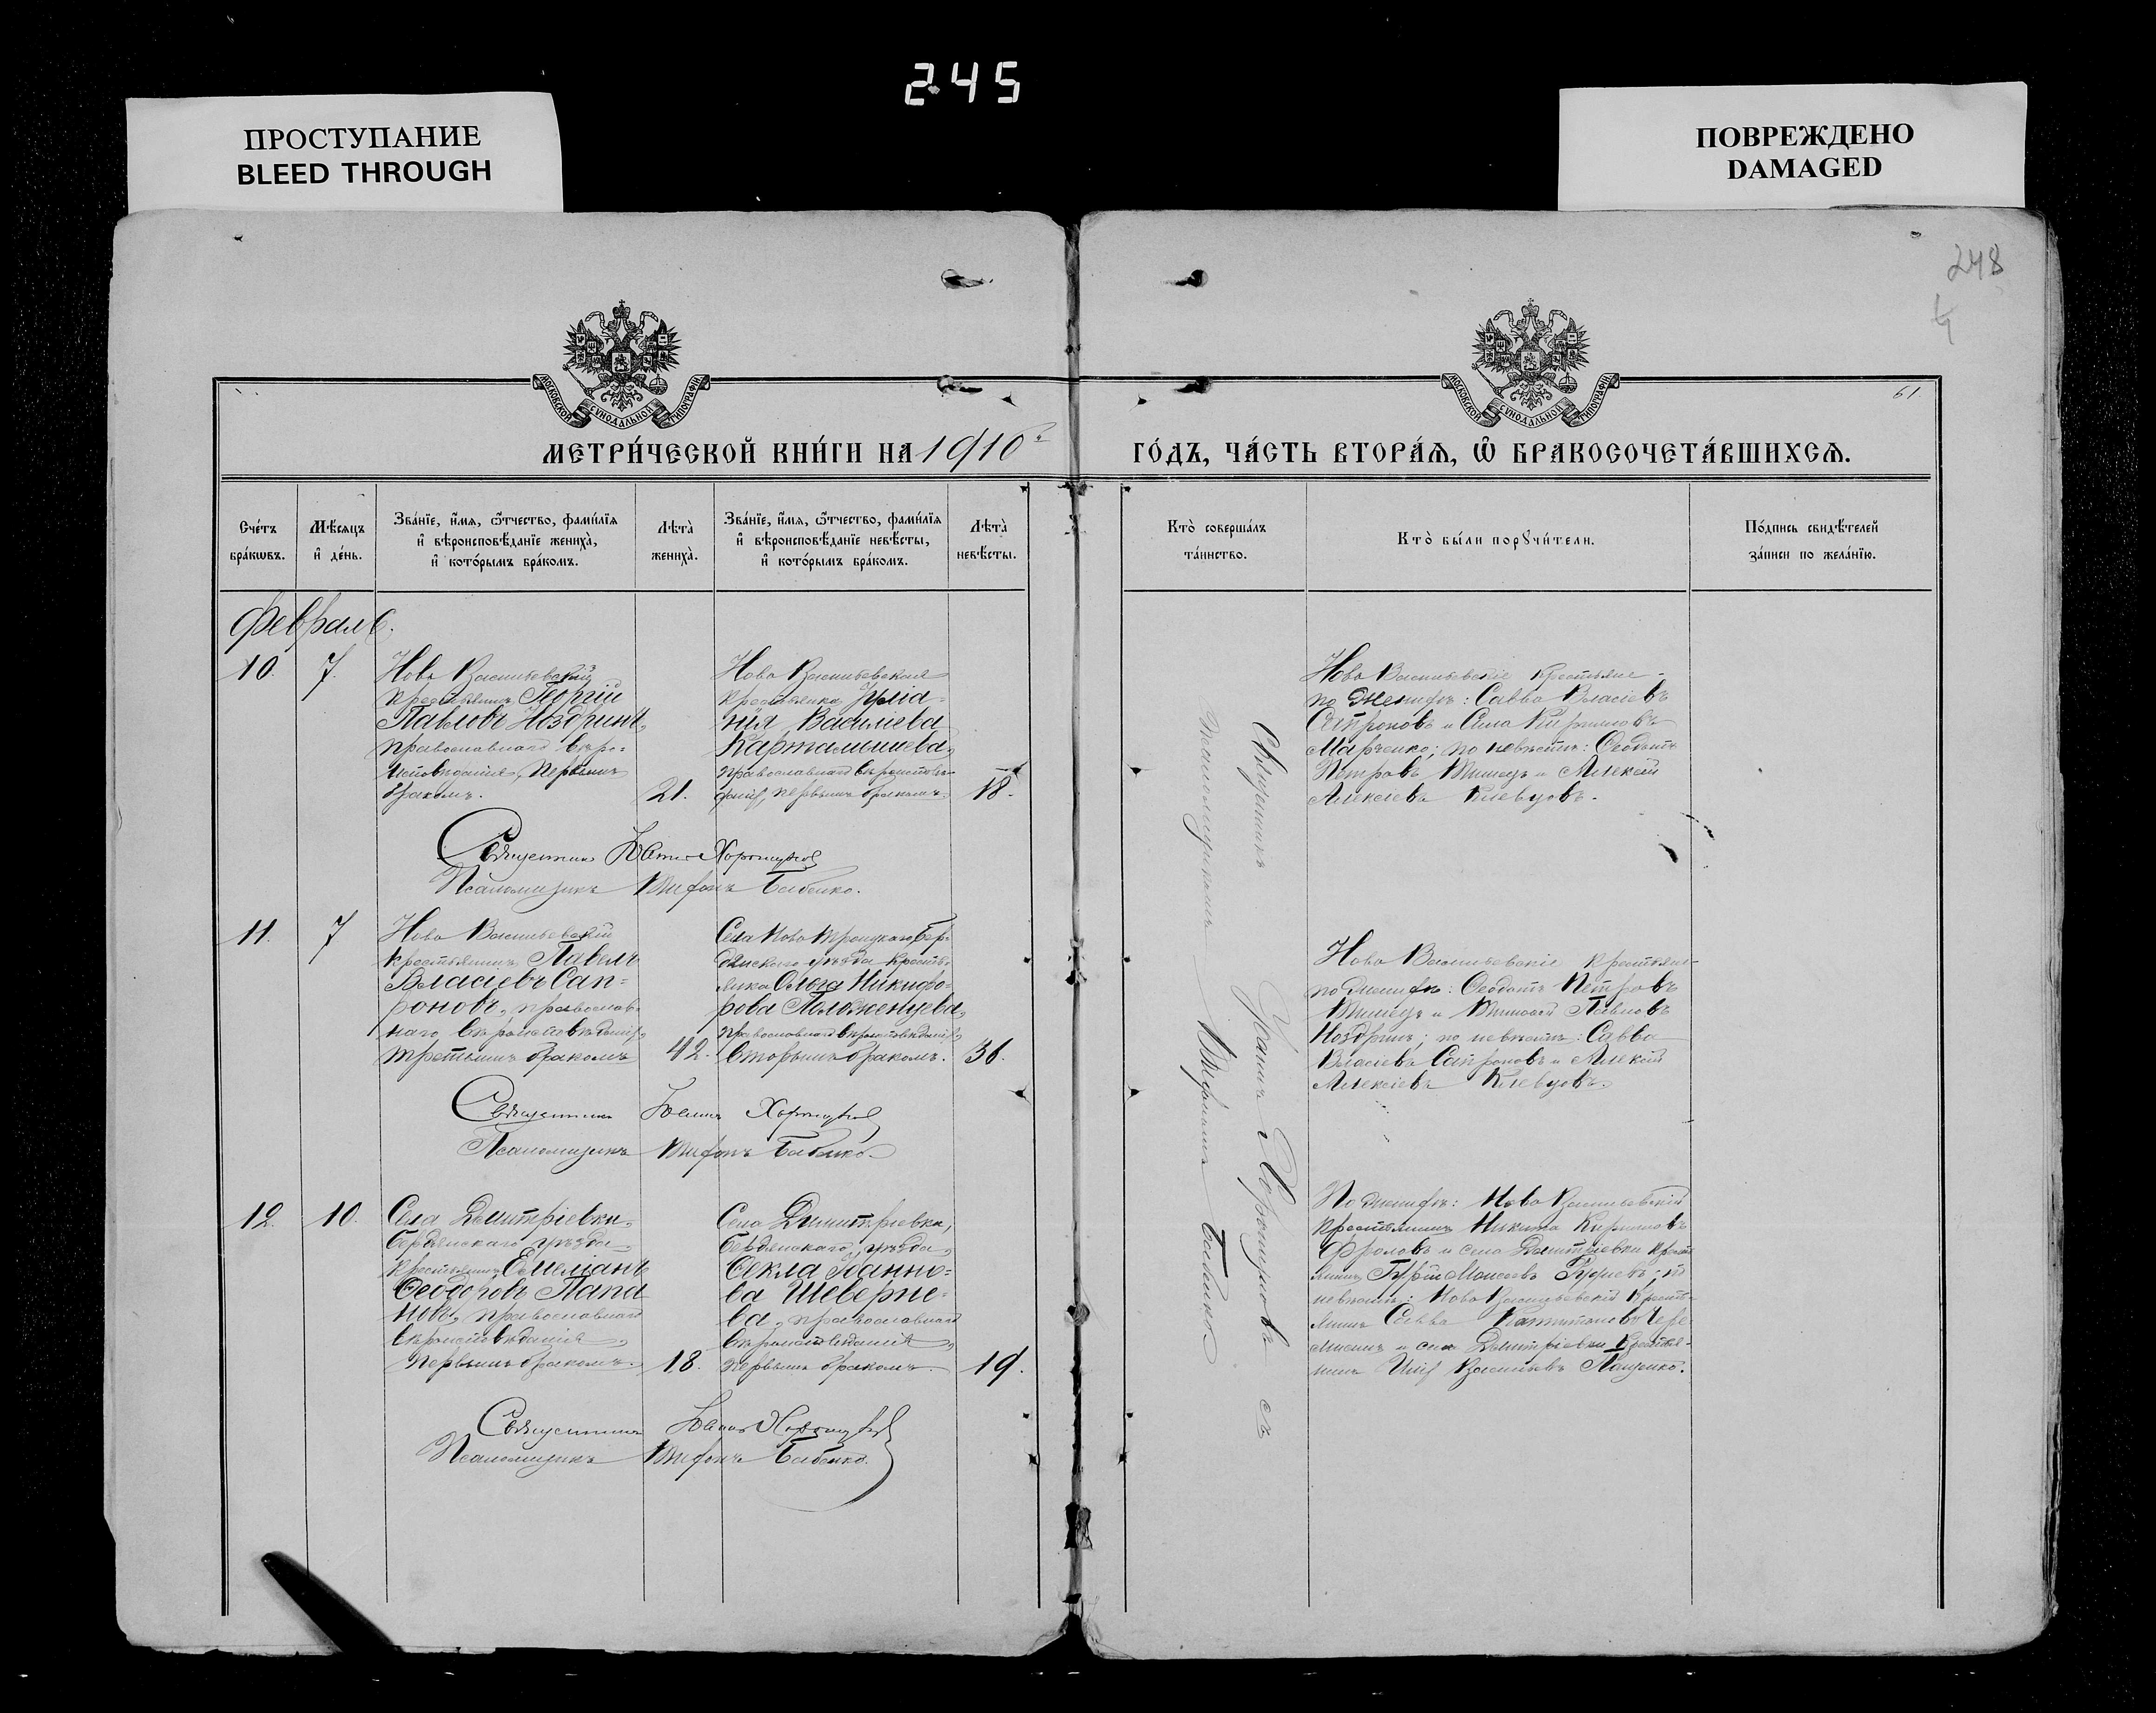 245
ПРОСТУПАНИЕ
BLEED THROUGH
ПОВРЕЖДЕНО
DAMAGED
248
61
МОСКОВСКОЙ СѴНОДАЛЬНОЙ ТИПОГРАФІИ
МОСКОВСКОЙ СѴНОДАЛЬНОЙ ТИПОГРАФІИ
МЕТРИ́ЧЕСКОЙ КНИ́ГИ НА 1910 г
ГО́ДЪ, ЧА́СТЬ ВТОРА́Ѧ, Ѽ БРАКОСОЧЕТА́ВШИХСѦ.
Сче́тъ бра́кѡвъ.
Мѣ́сяцъ и҆ де́нь.
Зва́нїе, и҆́мѧ, ѻ҆́тчество, фами́лїѧ
и҆ вѣроисповѣ́данїе жениха̀,
и҆ кото́рымъ бра́комъ.
Лѣта̀ жениха̀.
Зва́нїе, и҆́мѧ, ѻ҆́тчество, фами́лїѧ
и҆ вѣроисповѣ́данїе невѣ́сты,
и҆ кото́рымъ бра́комъ.
Лѣта̀ невѣ́сты.
Кто̀ соверша́лъ та́инство.
Кто̀ бы́ли порꙋчи́тели.
По́дпись свидѣ́телей за́писи по жела́нїю.
Февраль.
10.
7.
Ново Васильевскій
крестьянинъ Георгій
Павловъ Ноздринъ,
православнаго вѣро=
исповѣданія, первымъ
бракомъ.
21.
Ново Васильевская
крестьянка Ирина
Васильева
Карталышева,
православнаго вѣроисповѣ-
данія, первымъ бракомъ.
18.
Ново Васильевскіе крестьяне
по женихѣ: Савва Власіевъ
Сапроновъ и Сила Кириловъ
Марченко; по невѣстѣ: Ѳеодотъ
Петровъ и Алексій
Алексіевъ Клевцовъ.
Священникъ Іоаннъ Хорошуновъ
Псаломщикъ Трифонъ Бабенко.
11.
7
Ново Васильевскій
крестьянинъ Павелъ
Власіевъ Сап=
роновъ, православ-
наго вѣроисповѣданія,
третьимъ бракомъ
42.
Села Ново Троицкаго Бер=
дянскаго уѣзда кресть-
янка Ольга Никифо=
рова Положенцева,
православнаго вѣроисповѣданія,
вторымъ бракомъ.
36.
Ново Васильевскіе крестьяне
по женихѣ: Ѳеодотъ Петровъ
и Тимоѳей Павловъ
Ноздринъ; по невѣстѣ: Савва
Власіевъ Сапроновъ и Алексій
Алексіевъ Клевцовъ.
Священникъ Іоаннъ Хорошуновъ
Псаломщикъ Трифонъ Бабенко.
12.
10.
Села Димитріевки,
Бердянскаго уѣзда,
крестьянинъ Емеліанъ
Ѳеодоровъ Папа
новъ, православнаго
вѣроисповѣданія,
первымъ бракомъ.
18.
Села Димитріевки,
Бердянскаго уѣзда,
Ѳекла Іоанно=
ва Шеверне=
ва, православнаго
вѣроисповѣданія,
первымъ бракомъ.
19.
По женихѣ: Ново Васильевскій
крестьянинъ Никита Кириловъ
Фроловъ и села Димитріевки кресть
янинъ Моисеевъ; по
невѣстѣ: Ново Васильевскій кресть-
янинъ Савва
и села Димитріевки крестья-
нинъ Василіевъ Пащенко.
Священникъ Іоаннъ Хорошуновъ
Псаломщикъ Трифонъ Бабенко.
Священникъ Іоаннъ Хорошуновъ съ
псаломщикомъ Трифономъ Бабенко